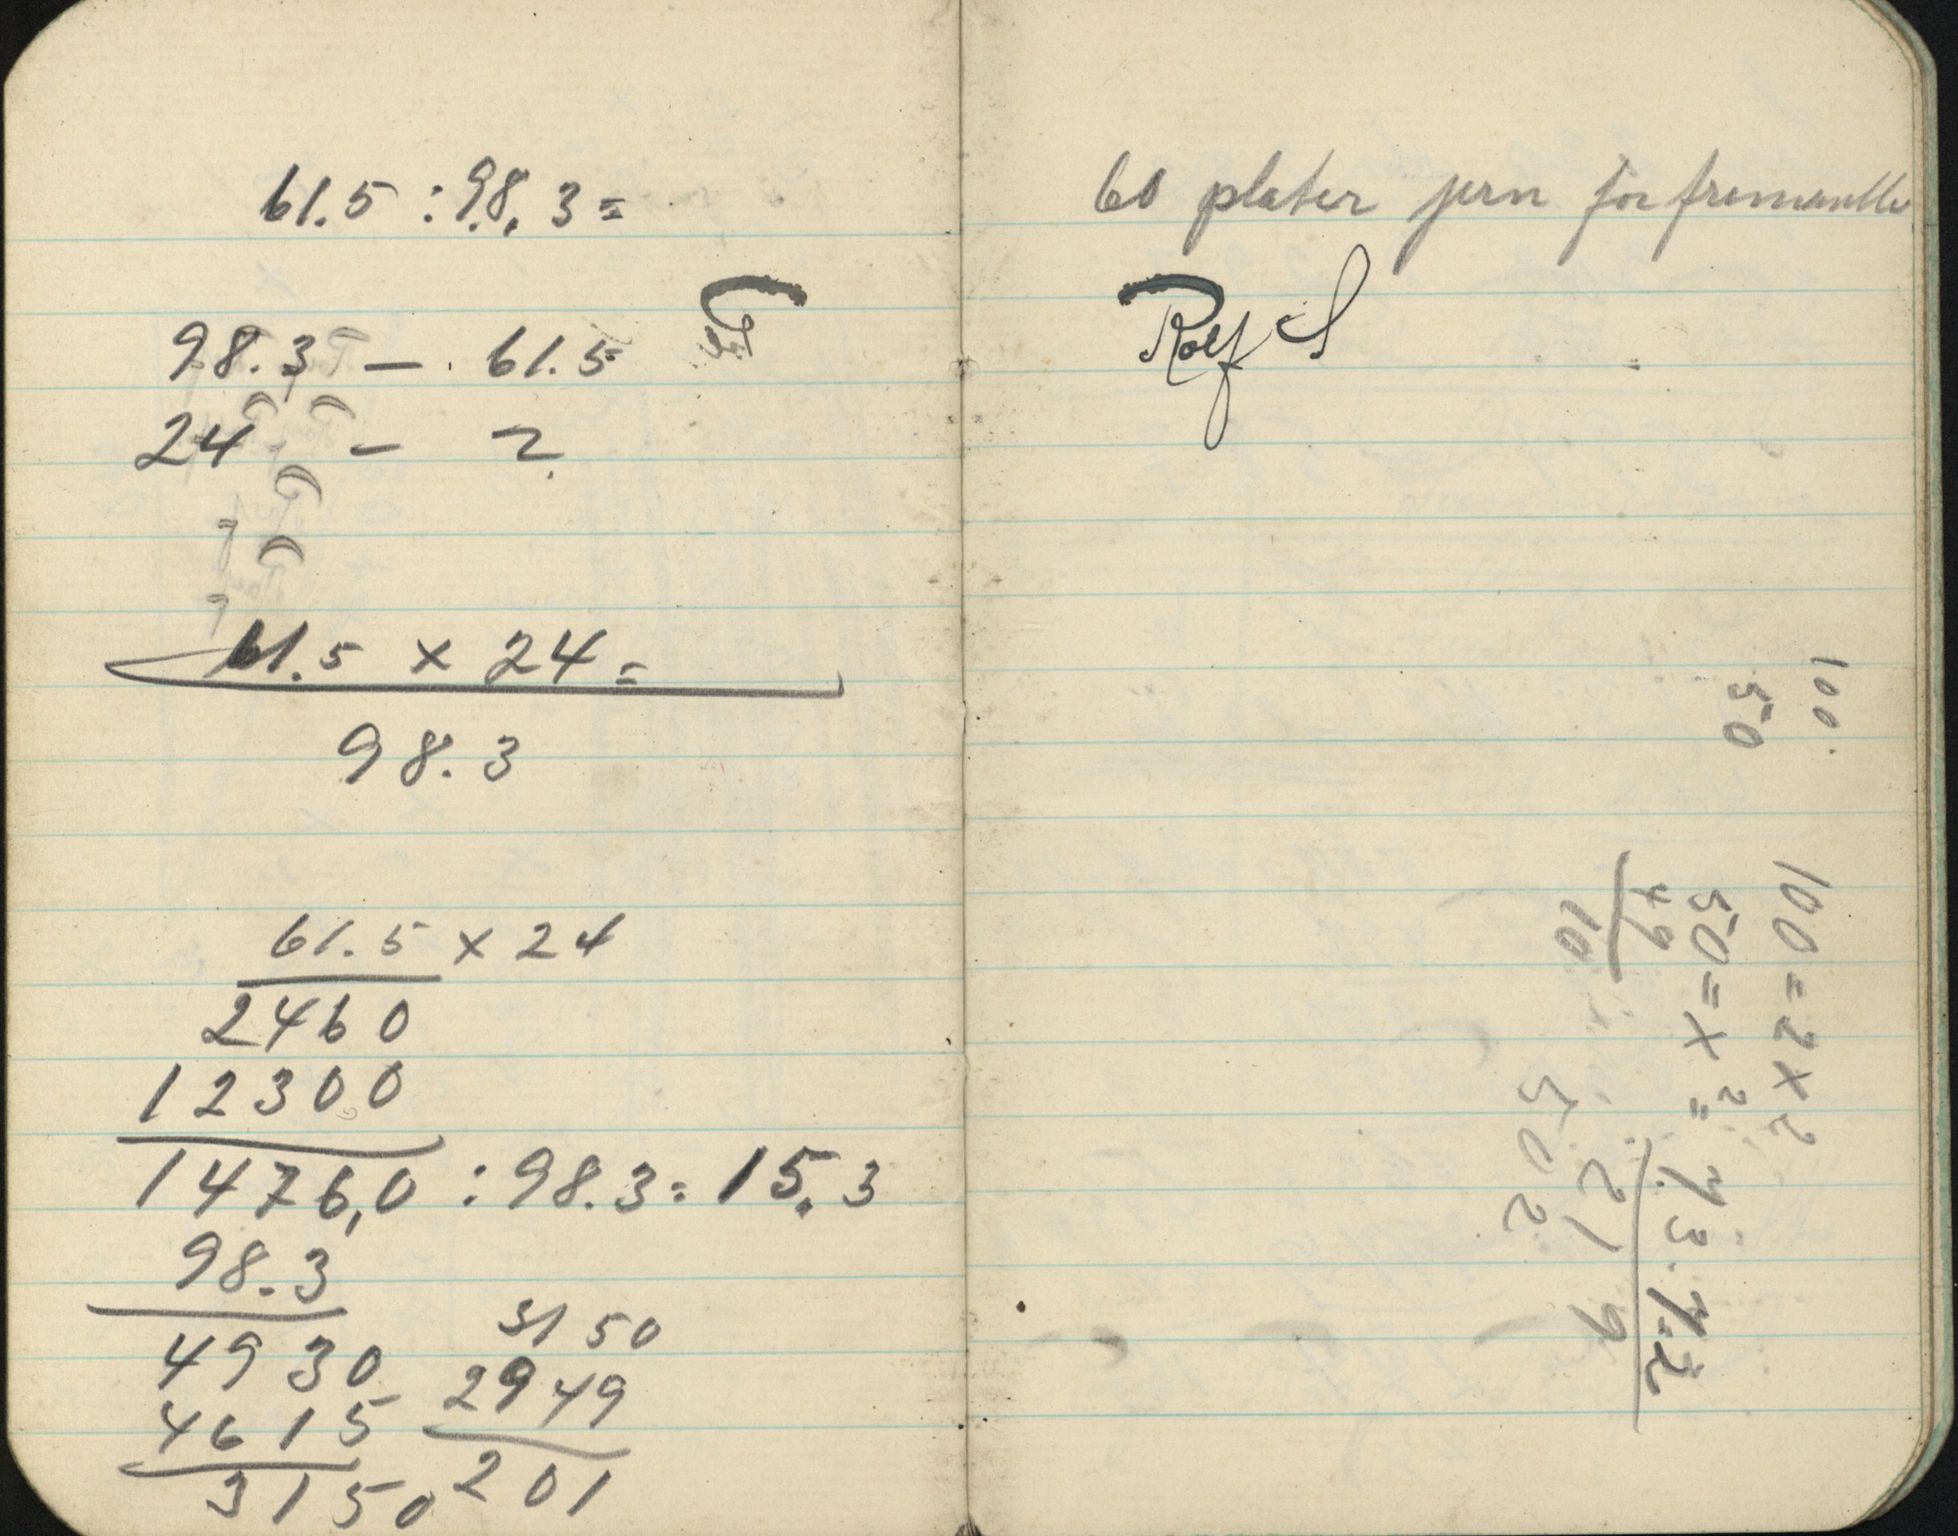 61.5 : 98.3 =
98.3 — 61.5
24 — ?
61.5 x 24 =
98.3
61.5 x 24
2460
12300
1476,0 : 98.3 = 15.3
98.3
4930
4615
3150
3150
2949
201
60 plater jern for fremantle
Rolf S
100.
50
100 = 2x²
50 = x² = 7.3.7.2
49
10
219
502